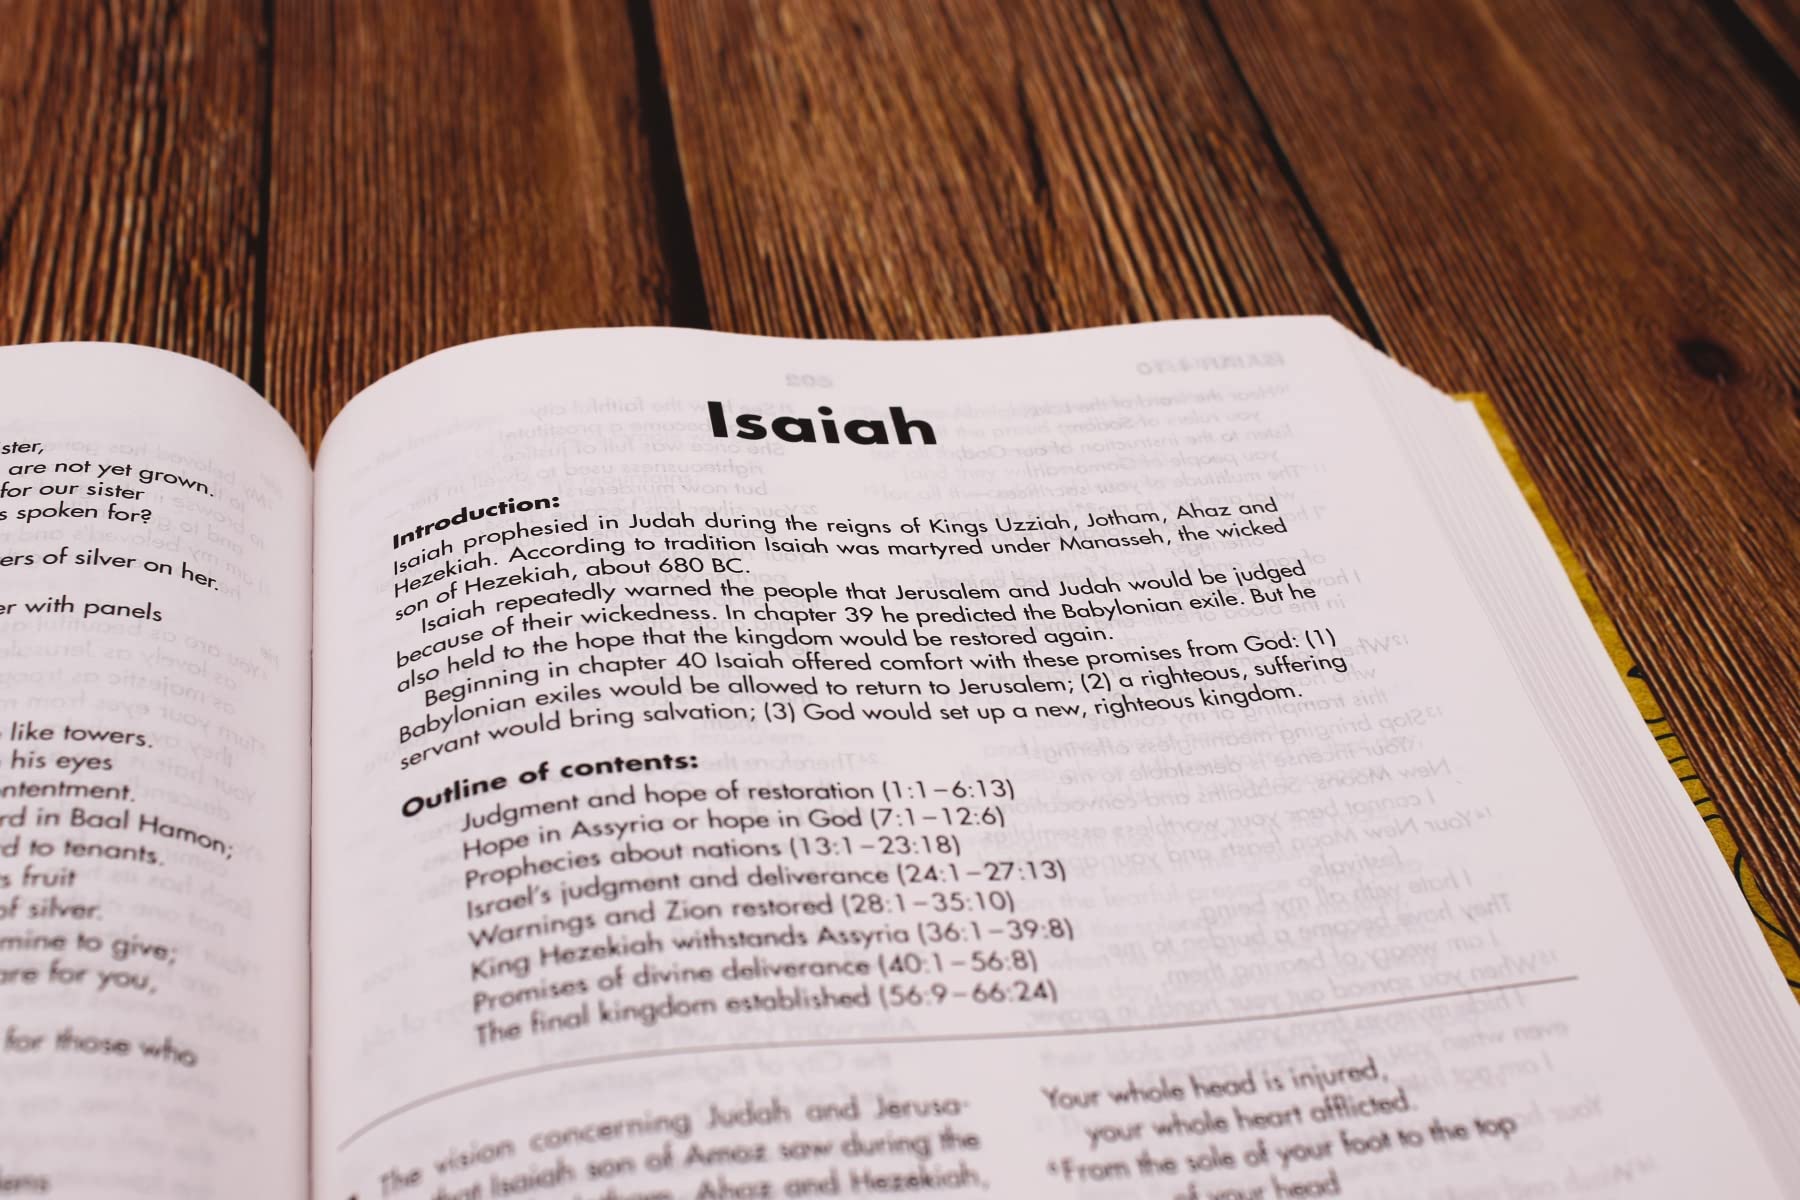 ster,
are not yet grown.
for our sister
s spoken for?
ers of silver on her.
er with panels
like towers.
his eyes
ntentment.
rd in Baal Hamon;
d to tenants.
s fruit
of silver.
mine to give;
are for you,
for those who
Isaiah
Introduction:
Isaiah prophesied in Judah during the reigns of Kings Uzziah, Jotham, Ahaz and
Hezekiah. According to tradition Isaiah was martyred under Manasseh, the wicked
son of Hezekiah, about 680 BC.
Isaiah repeatedly warned the people that Jerusalem and Judah would be judged
because of their wickedness. In chapter 39 he predicted the Babylonian exile. But he
also held to the hope that the kingdom would be restored again.
Beginning in chapter 40 Isaiah offered comfort with these promises from God: (1)
Babylonian exiles would be allowed to return to Jerusalem; (2) a righteous, suffering
servant would bring salvation; (3) God would set up a new, righteous kingdom.
Outline of contents:
Judgment and hope of restoration (1:1–6:13)
Hope in Assyria or hope in God (7:1–12:6)
Prophecies about nations (13:1–23:18)
Israel's judgment and deliverance (24:1–27:13)
Warnings and Zion restored (28:1–35:10)
King Hezekiah withstands Assyria (36:1–39:8)
Promises of divine deliverance (40:1–56:8)
The final kingdom established (56:9–66:24)
The vision concerning Judah and Jerusa-
that Isaiah son of Amoz saw during the
Ahaz and Hezekiah,
Your whole head is injured,
your whole heart afflicted.
⁶From the sole of your foot to the top
of your head